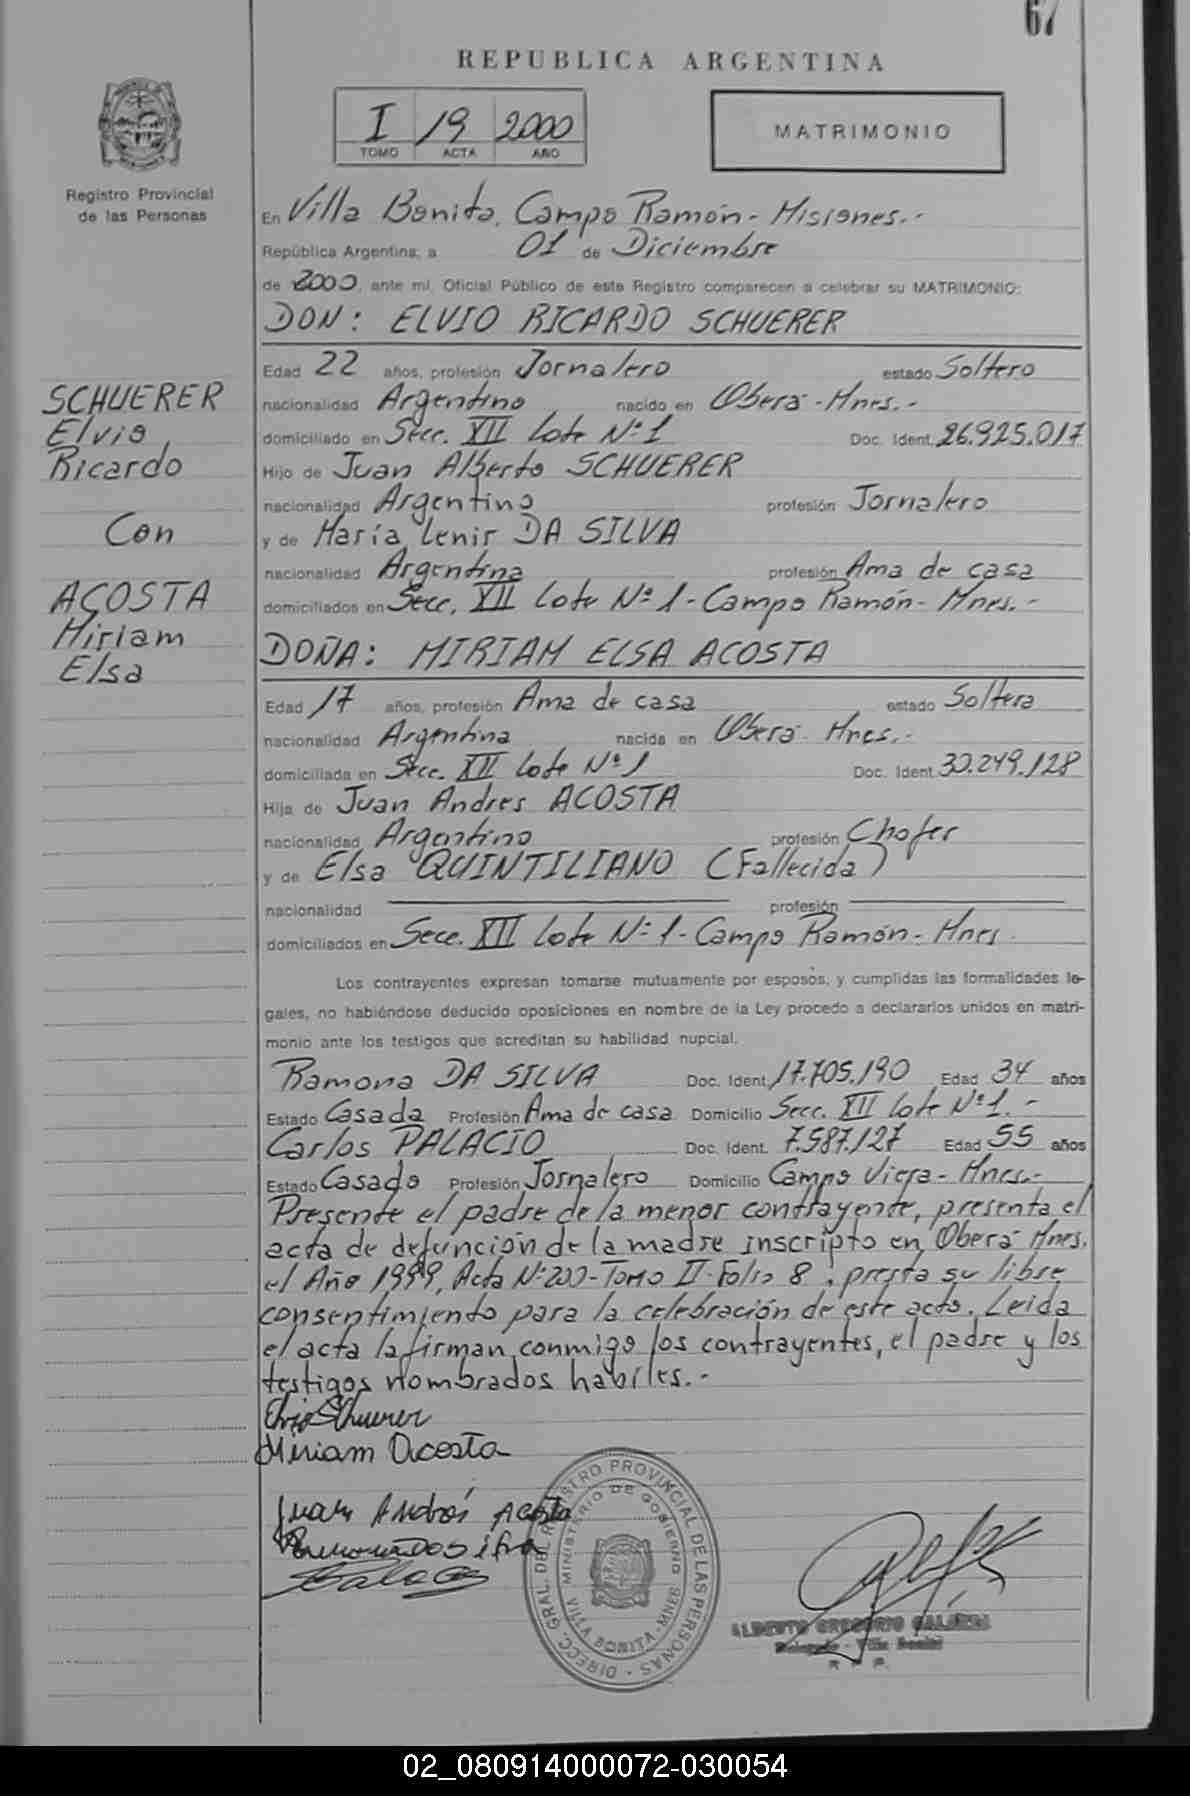 67
REPUBLICA ARGENTINA
I 19 2000
TOMO ACTA AÑO
MATRIMONIO
Registro Provincial
de las Personas
En Villa Bonita, Campo Ramón - Misiones.-
República Argentina, a 01 de Diciembre
de 2000, ante mí, Oficial Público de este Registro comparecen a celebrar su MATRIMONIO:
DON: ELVIO RICARDO SCHUERER
Edad 22 años, profesión Jornalero estado Soltero
nacionalidad Argentino nacido en Oberá - Mnes.-
domiciliado en Secc. XII Lote Nº 1 Doc. Ident. 26.925.017
Hijo de Juan Alberto SCHUERER
nacionalidad Argentino profesión Jornalero
y de María Lenir DA SILVA
nacionalidad Argentina profesión Ama de casa
domiciliados en Secc. XII Lote Nº 1 - Campo Ramón - Mnes.-
SCHUERER
Elvio
Ricardo
Con
ACOSTA
Miriam
Elsa
DOÑA: MIRIAM ELSA ACOSTA
Edad 17 años, profesión Ama de casa estado Soltera
nacionalidad Argentina nacida en Oberá - Mnes.-
domiciliada en Secc. XII Lote Nº 1 Doc. Ident. 30.249.128
Hija de Juan Andres ACOSTA
nacionalidad Argentino profesión Chofer
y de Elsa QUINTILIANO (Fallecida)
nacionalidad profesión
domiciliados en Secc. XII Lote Nº 1 - Campo Ramón - Mnes.
Los contrayentes expresan tomarse mutuamente por esposos, y cumplidas las formalidades le-
gales, no habiéndose deducido oposiciones en nombre de la Ley procedo a declararlos unidos en matri-
monio ante los testigos que acreditan su habilidad nupcial.
Ramona DA SILVA Doc. Ident. 17.705.190 Edad 34 años
Estado Casada Profesión Ama de casa Domicilio Secc. XII Lote Nº 1.-
Carlos PALACIO Doc. Ident. 7.587.127 Edad 55 años
Estado Casado Profesión Jornalero Domicilio Campo Viera - Mnes.-
Presente el padre de la menor contrayente, presenta el
acta de defunción de la madre inscripto en Oberá Mnes.
el Año 1999, Acta Nº 200 - Tomo II - Folio 8, presta su libre
consentimiento para la celebración de este acto. Leida
el acta la firman conmigo los contrayentes, el padre y los
testigos nombrados habiles.-
Elvio Schuerer
Miriam Acosta
Juan Andrés Acosta
Ramona Da Silva
Palacio
DIRECC. GRAL. DEL REGISTRO PROVINCIAL DE LAS PERSONAS
MINISTERIO DE GOBIERNO
VILLA BONITA - MNES
ALBERTO GREGORIO
Delegado - Villa Bonita
R. P. P.
02_080914000072-030054